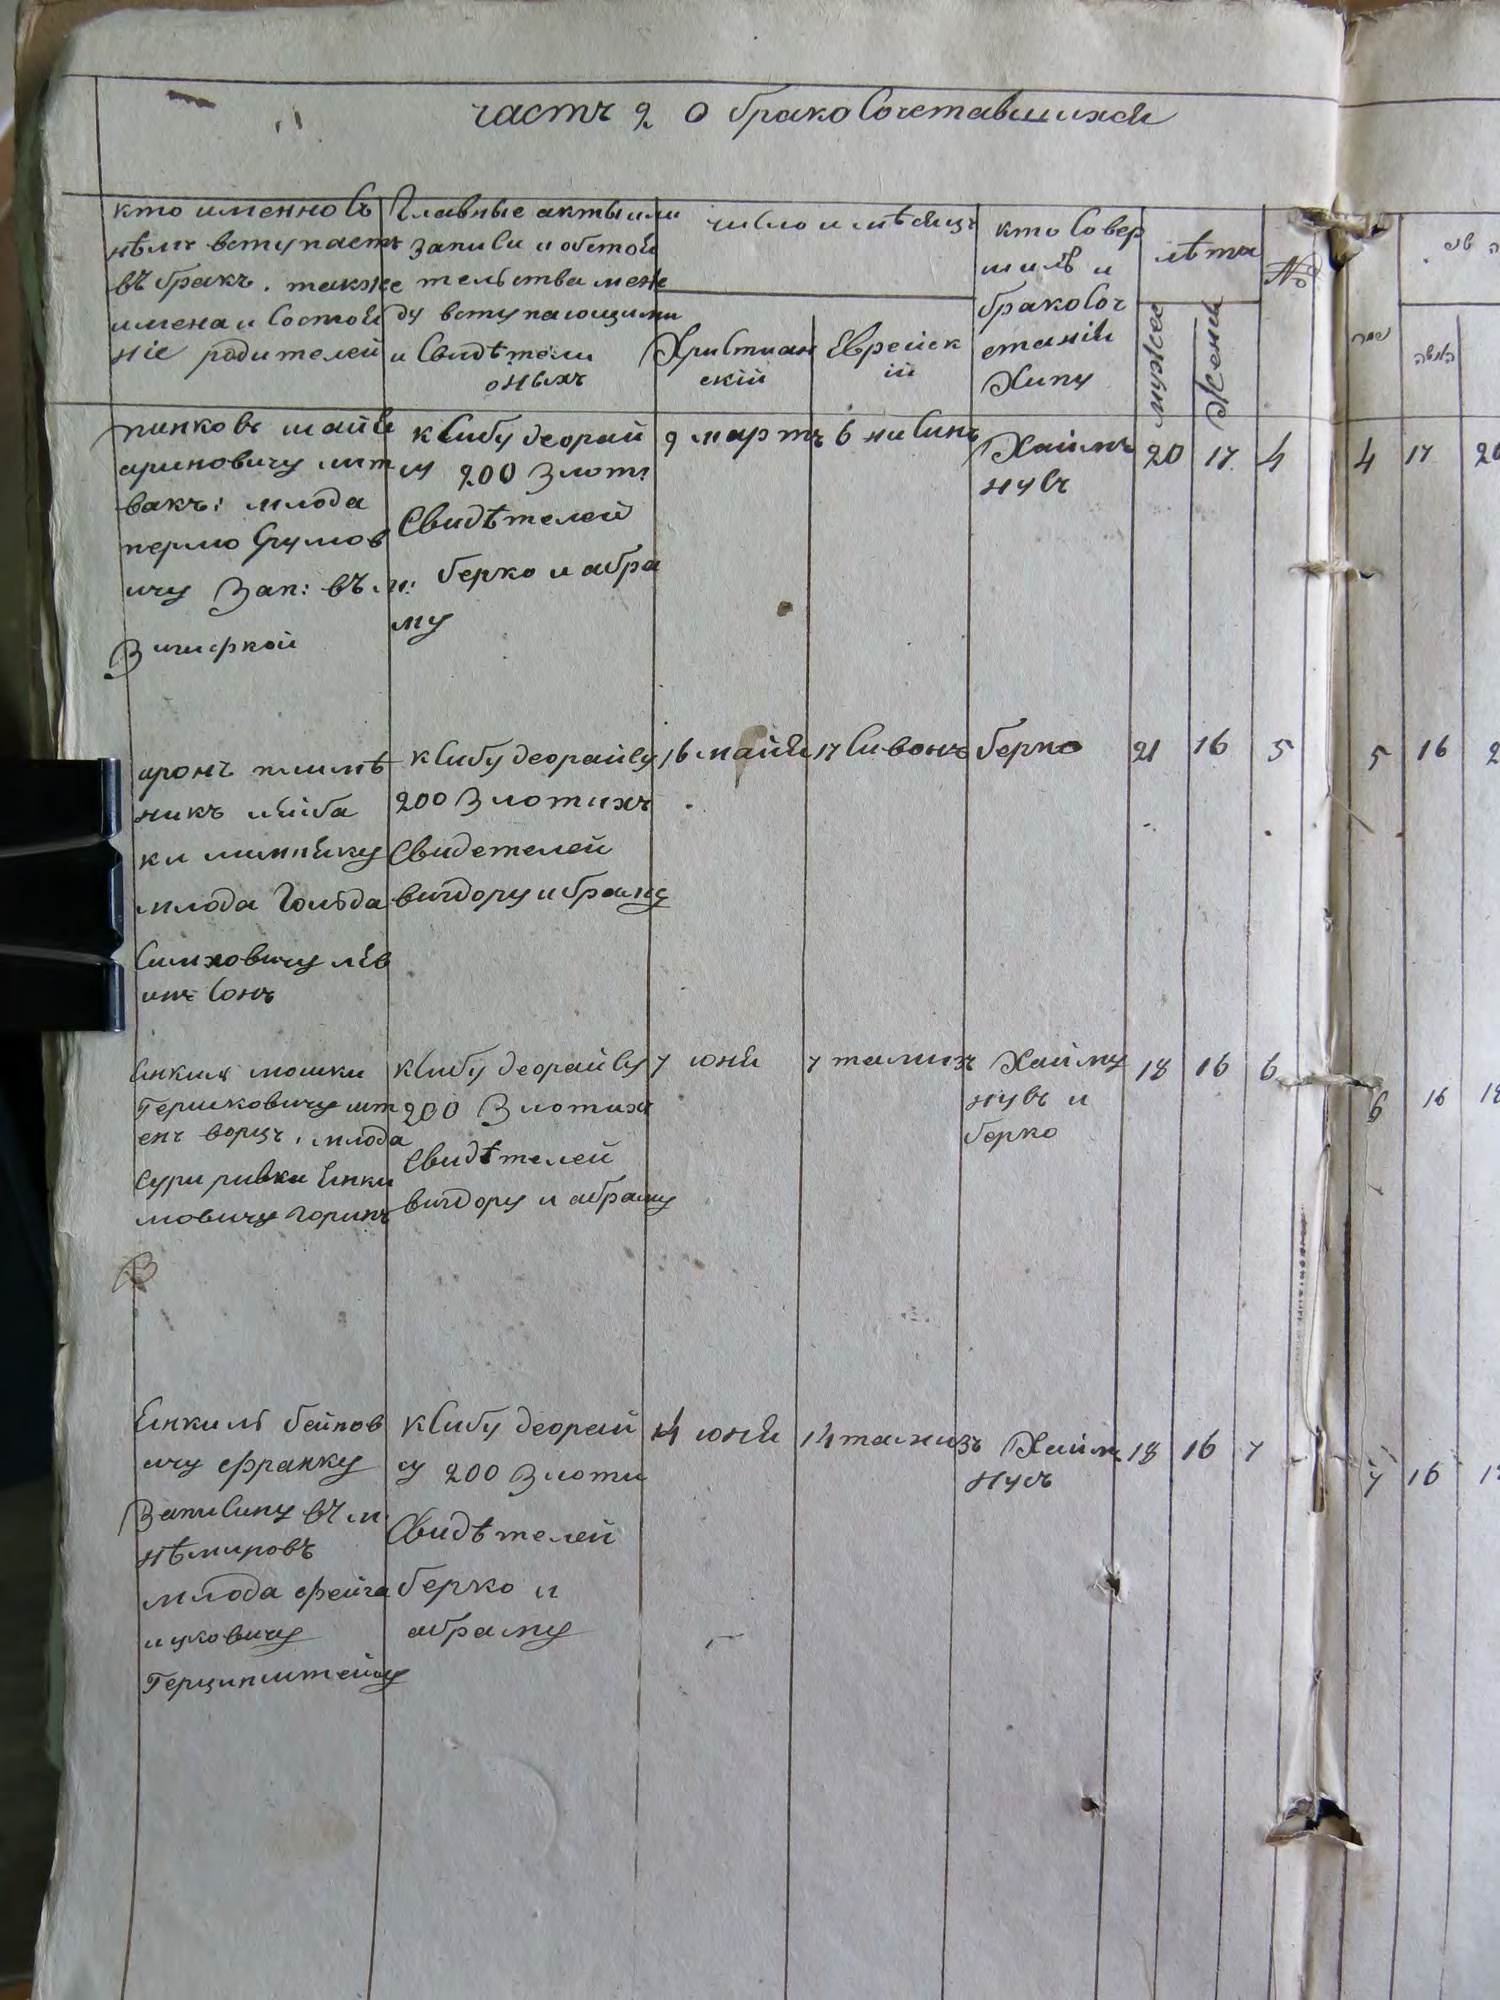 часть 2 о бракосочетавшихся
кто именно съ
нѣмъ вступаетъ
въ бракъ. также
имена и состой
ніе родителей
Главные акты или
записи и обстой
тельства меж
ду вступающими
и свидѣтели
оныхъ
число и мѣсяцъ
Христиан
скій
Еврейск
ій
кто совер
шилъ и
бракосоч
етаній
Хипу
лѣта
мужес
жени
№
пинковъ
ариновичу лит
вакъ: млода
перлю Срулов
ичу Зап: въ м:
ксибу деорай
су 200 Злот:
Свидѣтелей
берко и абра
му
9 мартъ
6 нисинъ
Хаимъ
нусъ
20
17
4
4 17
аронъ
никъ
ки
млода Гольда
Симховичу лев
ит сонъ
ксибу деорайсу
200 Злотихъ
Свидетелей
вигдору и абраму
16 майя
17 Сивонъ
берко
21
16
5
5 16
Янкиль мошки
Гершковичу шт
енъ ворцъ, млода
Сури ривки Янки
ловичу
ксибу деорайсу
200 Злотихъ
Свидѣтелей
вигдору и абраму
7 юня
7 тамизъ
Хаиму
нусъ и
берко
18
16
6
6 16
Янкиль бейнов
ичу франку
Записину въ м
нѣмировъ
млода фейга
ицковичу
Герцинштейну
ксибу деорай
су 200 Злоти
Свидѣтелей
берко и
абраму
14 юня
14 тамизъ
Хаимъ
нусъ
18
16
7
7 16